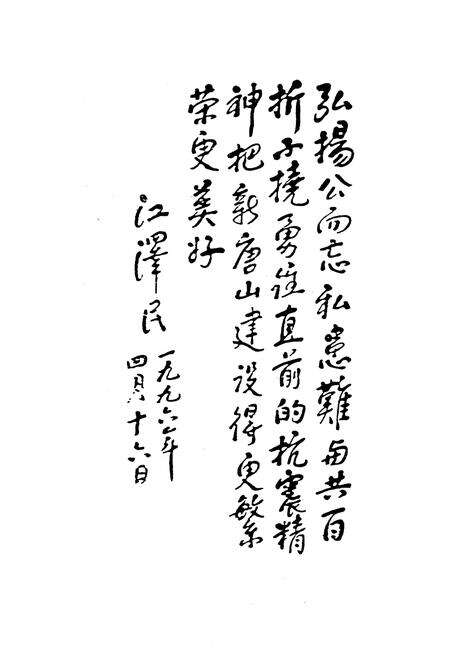 弘揚公而忘私患難与共百
折不撓勇往直前的抗震精
神把新唐山建设得更繁
荣更美好
江澤民
一九九六年
四月十六日